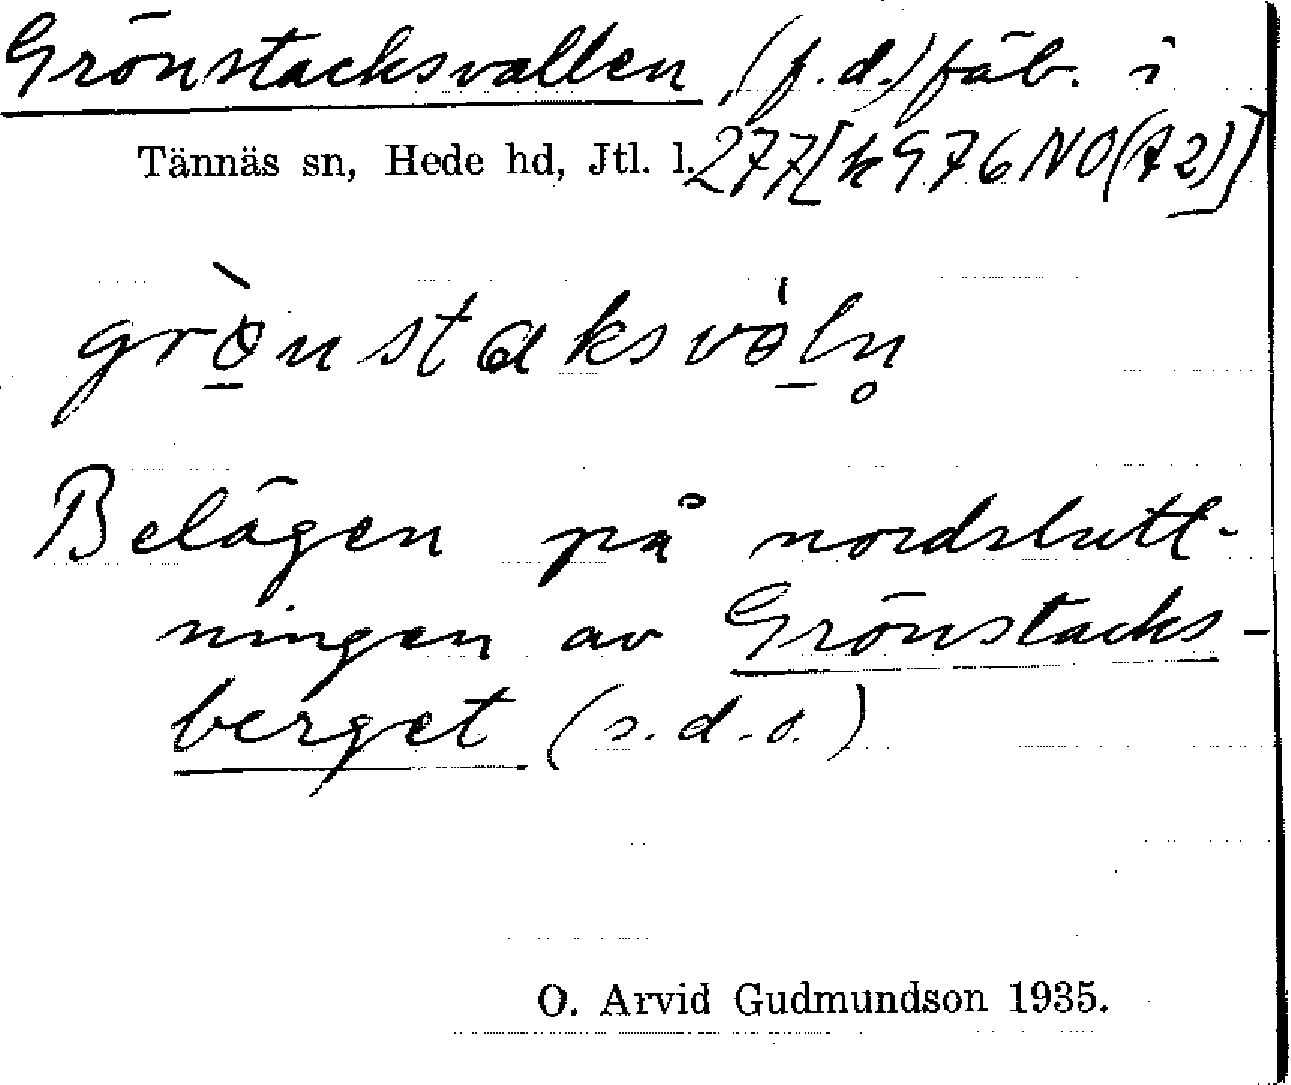 Grönstacksvallen, (f.d.) fäb. i
Tännäs sn, Hede hd, Jtl. l. 277 [k 976 NO (A2)]
grö̀nstaksvö̍ln̥
Belägen på nordslutt-
ningen av Grönstacks-
berget (s.d.o.)
O. Arvid Gudmundson 1935.